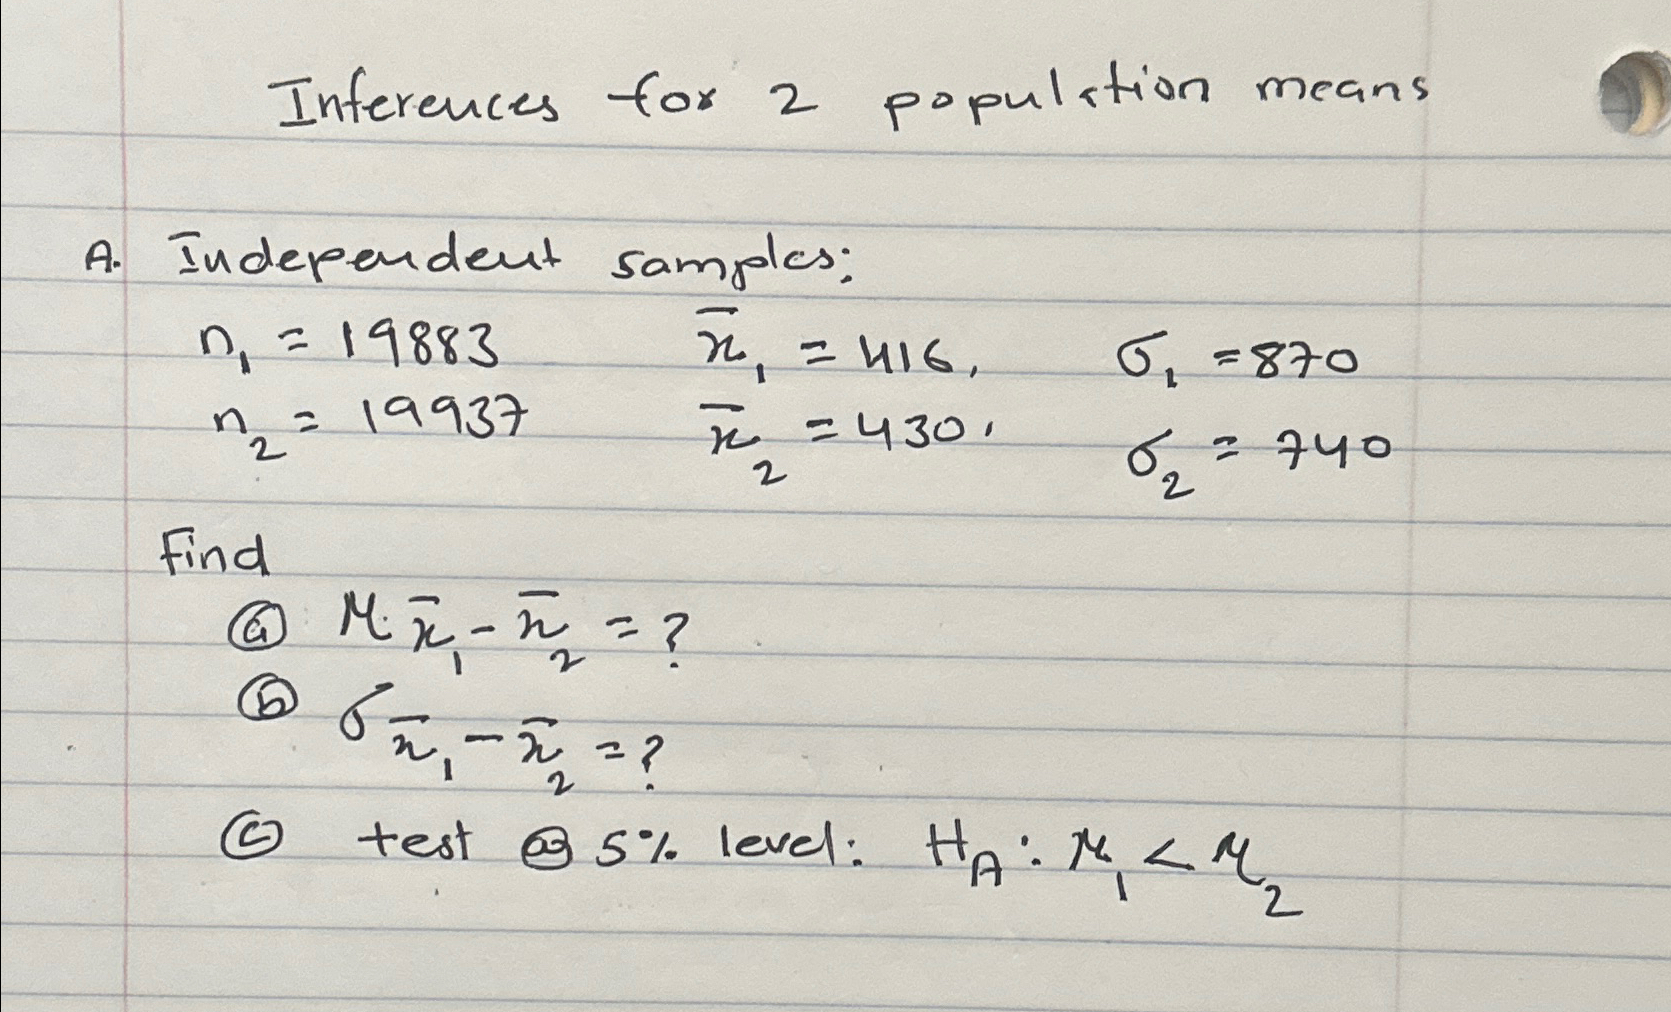 Inferences for 2 population means
A. Independent samples:
n₁ = 19883 x̄₁ = 416, σ₁ = 870
n₂ = 19937 x̄₂ = 430, σ₂ = 740
Find
ⓐ μ x̄₁ - x̄₂ = ?
ⓑ σ x̄₁ - x̄₂ = ?
ⓒ test @ 5% level: H_A: μ₁ < μ₂